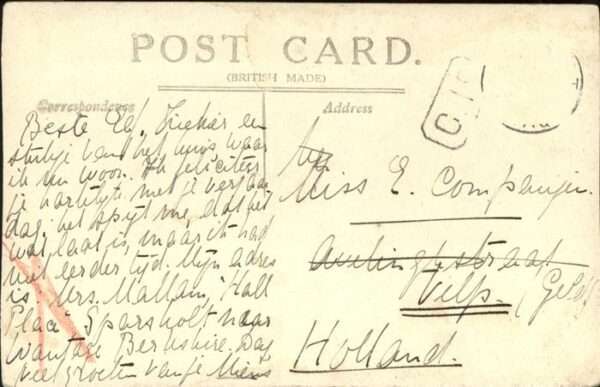 POST CARD.
(BRITISH MADE)
Correspondence
Address
Beste Eef, Hierbij een
stukje van het huis waar
ik nu woon. Ik feliciteer
je hartelijk met je verjaar-
dag. het spijt me, dat het
wat laat is, maar ik had
niet eerder tijd. Mijn adres
is: Mrs. Mallam, "Hall
Place" Sparsholt near
Wantage Berkshire. Dag
veel groeten van je Miens
Miss E. Companjen.
Velp. (Geld)
Holland.